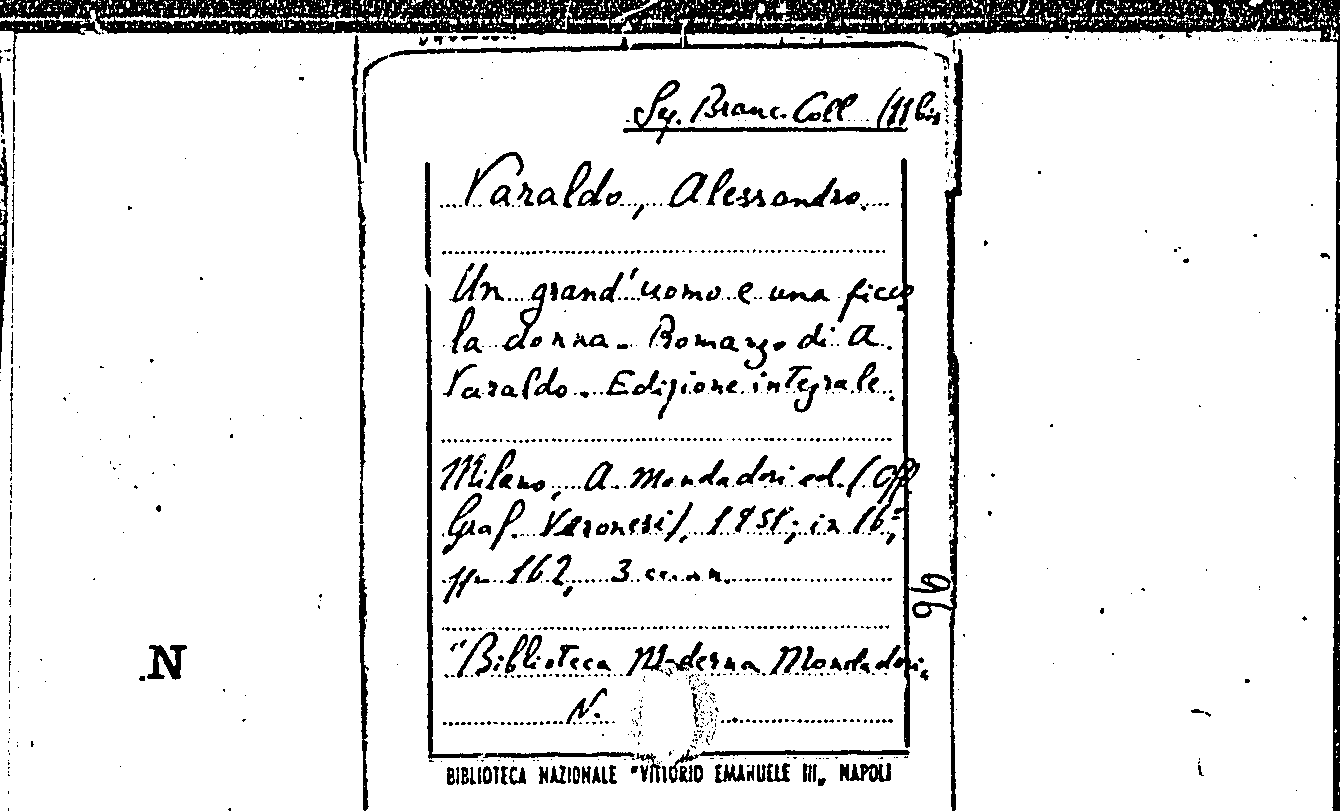 Sez. Branc. Coll 111 bis
Varaldo, Alessandro.
Un grand'uomo e una picco
la donna. Romanzo di A.
Varaldo. Edizione integrale.
Milano, A. Mondadori ed. (Off.
Graf. Veronesi), 1951; in 16°,
pp. 162, 3 cc. nn.
"Biblioteca Moderna Mondadori„
N.
96
.N
BIBLIOTECA NAZIONALE "VITTORIO EMANUELE III„ NAPOLI